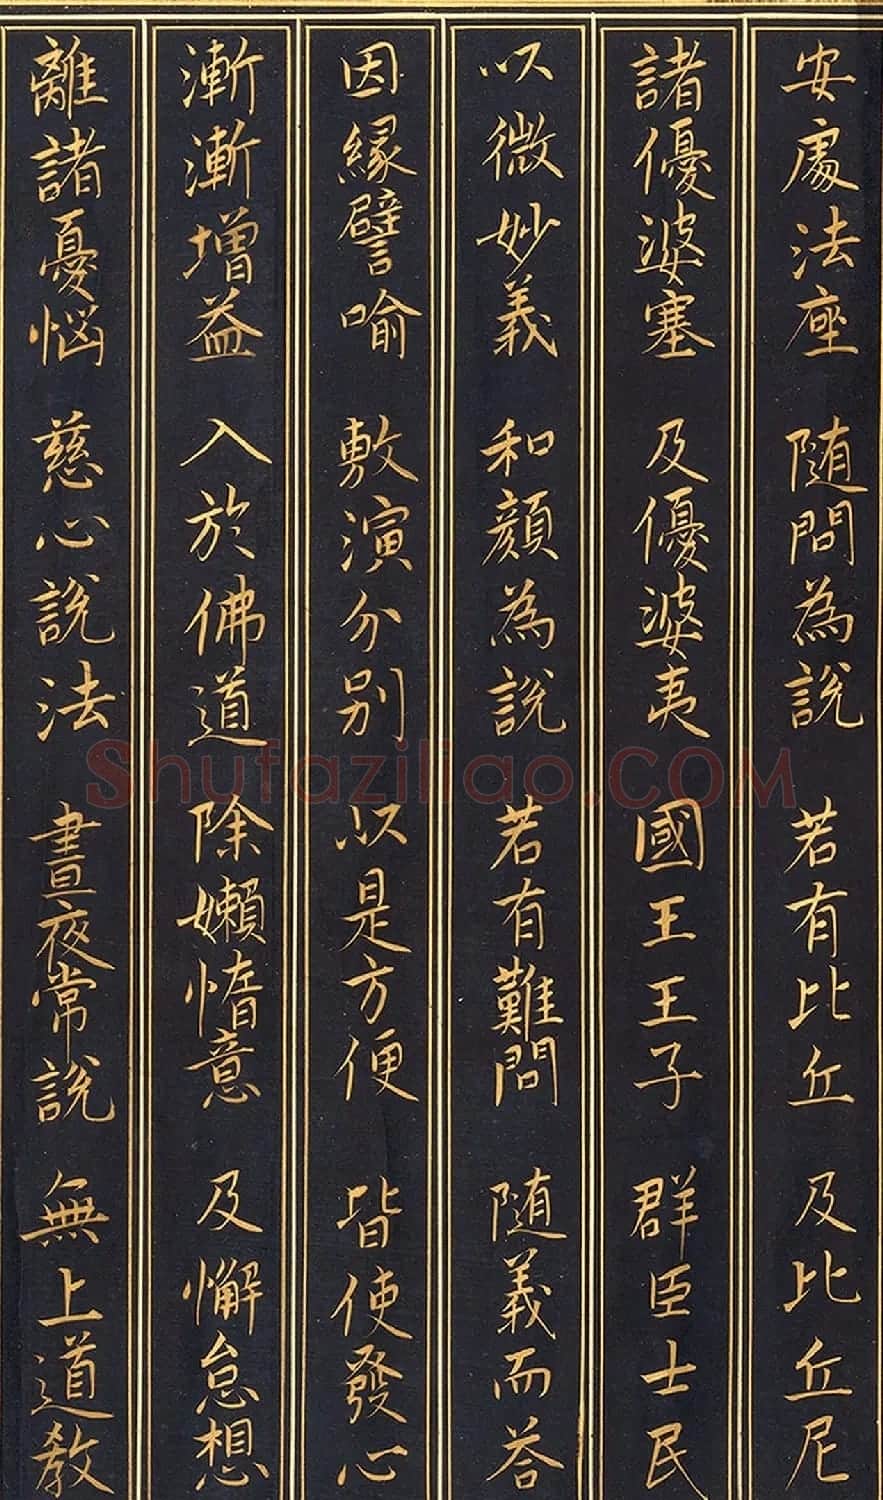 安處法座 随問為說 若有比丘 及比丘尼
諸優婆塞 及優婆夷 國王王子 群臣士民
以微妙義 和顏為說 若有難問 随義而荅
因緣譬喻 敷演分別 以是方便 皆使發心
漸漸增益 入於佛道 除嬾惰意 及懈怠想
離諸憂惱 慈心說法 晝夜常說 無上道教
Shufaziliao.COM